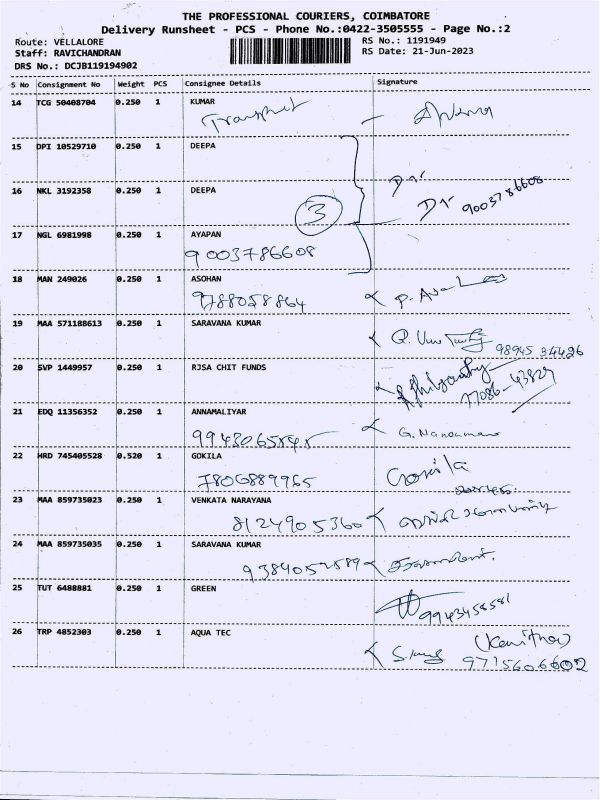 THE PROFESSIONAL COURIERS, COIMBATORE
Delivery Runsheet - PCS - Phone No.:0422-3505555 - Page No.:2
Route: VELLALORE RS No.: 1191949
Staff: RAVICHANDRAN RS Date: 21-Jun-2023
DRS No.: DCJB119194902
S No Consignment No Weight PCS Consignee Details Signature
14 TCG 50408704 0.250 1 KUMAR
15 DPI 10529710 0.250 1 DEEPA
16 NKL 3192358 0.250 1 DEEPA
3 9003786608
17 NGL 6981998 0.250 1 AYAPAN
9003786608
18 MAN 249026 0.250 1 ASOHAN
9788058864
19 MAA 571188613 0.250 1 SARAVANA KUMAR
98945 34426
20 SVP 1449957 0.250 1 RJSA CHIT FUNDS
21 EDQ 11356352 0.250 1 ANNAMALIYAR
22 MRD 745405528 0.520 1 GOKILA
7806889965 Gokila
23 MAA 859735023 0.250 1 VENKATA NARAYANA
8124905360
24 MAA 859735035 0.250 1 SARAVANA KUMAR
25 TUT 6488881 0.250 1 GREEN
9943458581
26 TRP 4852303 0.250 1 AQUA TEC
9715606602